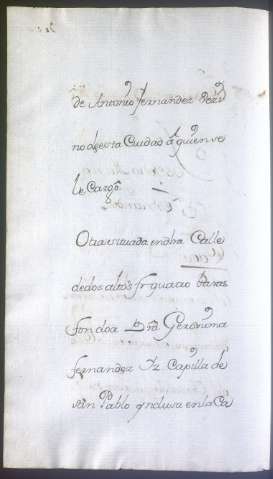 de Antonio fernandez Vezi
no desta Ciudad â quien se
le Cargô
Otra situada en dha Calle
de dos altos fr guacio Varas
fondo a Dª Geronima
fernandez Yz Capilla de
san Pablo ynclusa en la Ca